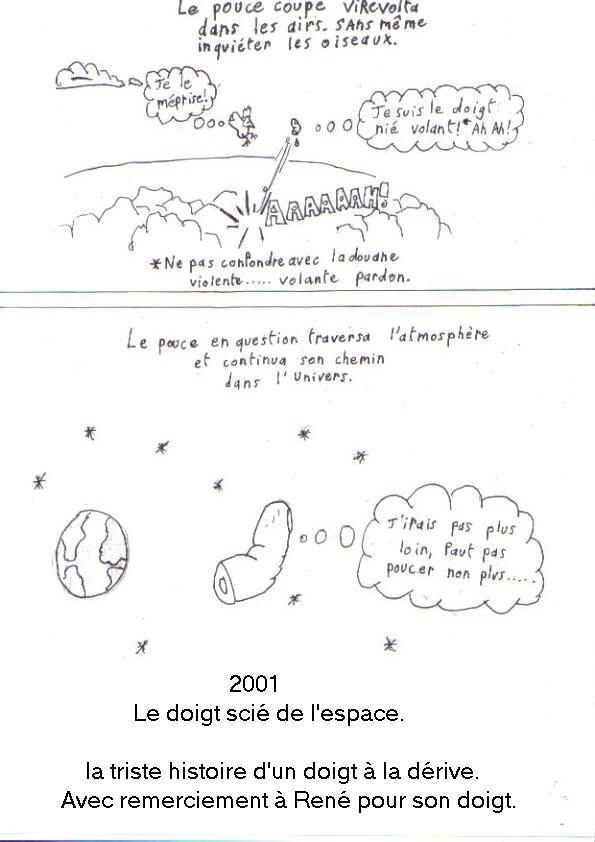 Le pouce coupé virevolta
dans les airs. sans même
inquiéter les oiseaux.
Je le
méprise!
Je suis le doigt
nié volant!* Ah Ah!
AAAAAAH!
*Ne pas confondre avec la douane
violente..... volante pardon.
Le pouce en question traversa l'atmosphère
et continua son chemin
dans l'Univers.
J'irais pas plus
loin, faut pas
poucer non plus.....
2001
Le doigt scié de l'espace.
la triste histoire d'un doigt à la dérive.
Avec remerciement à René pour son doigt.